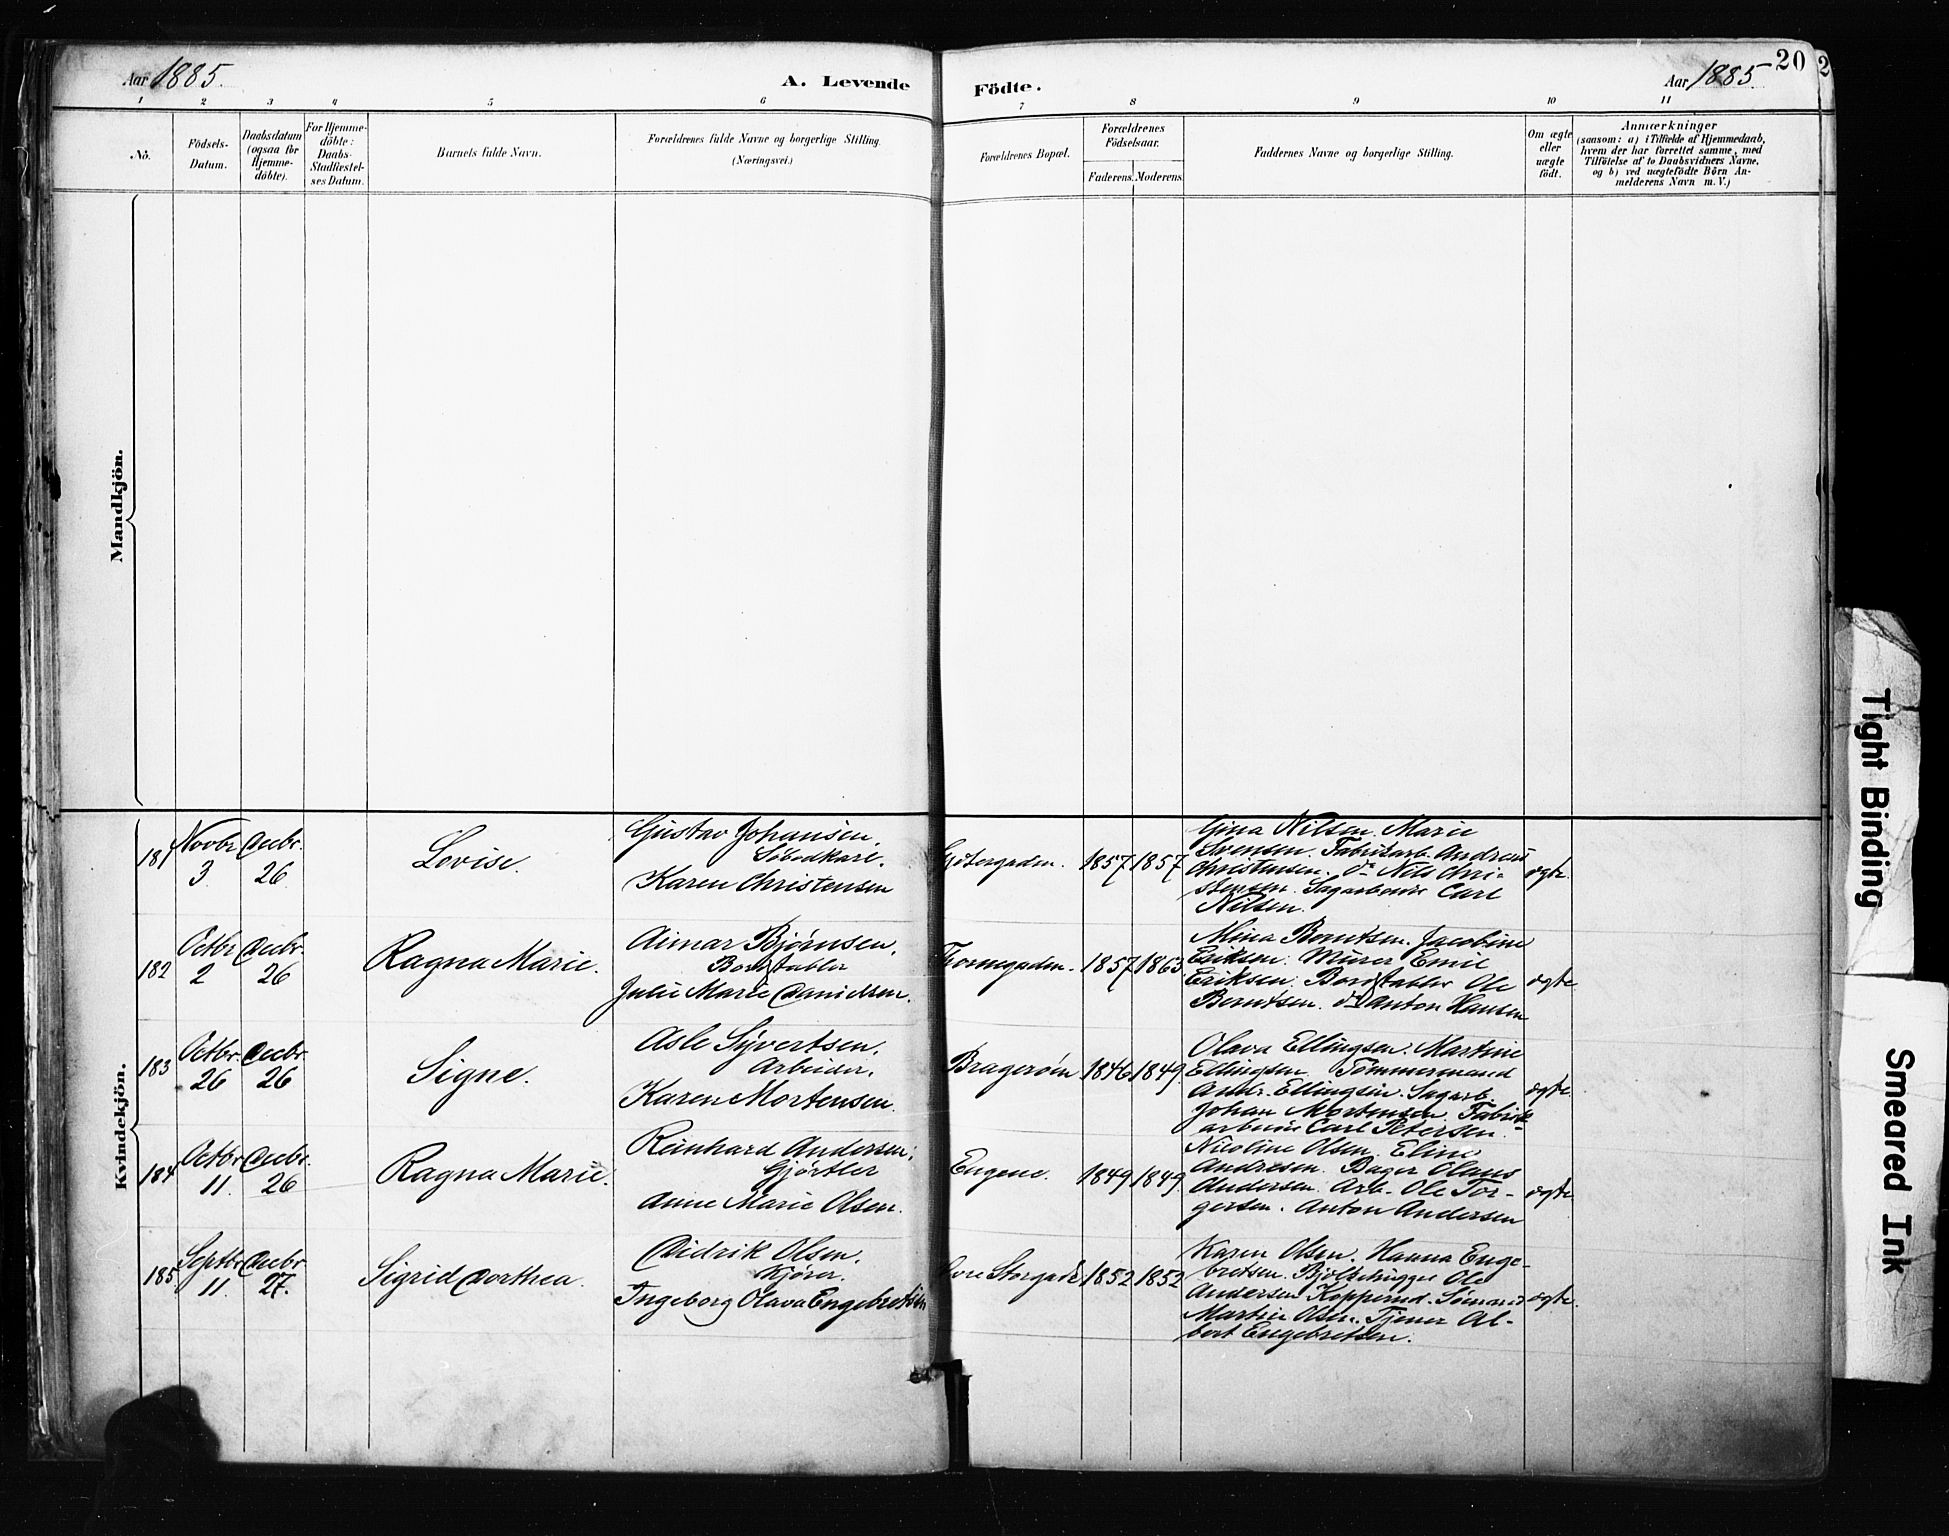 Aar 1885.
A. Levende
Födte.
Aar 1885
20
1 2 3 4 5 6 7 8 9 10 11
No.
Födsels-
Datum.
Daabsdatum
(ogsaa for
Hjemme-
döbte).
For Hjemme-
döbte:
Daabs-
Stadfæstel-
ses Datum.
Barnets fulde Navn.
Forældrenes fulde Navne og borgerlige Stilling.
(Næringsvei.)
Forældrenes Bopæl.
Forældrenes
Födselsaar.
Faderens. Moderens.
Faddernes Navne og borgerlige Stilling.
Om ægte
eller
uægte
födt.
Anmærkninger
(saasom: a) i Tilfælde af Hjemmedaab,
hvem der har forrettet samme, med
Tilföielse af to Daabsvidners Navne,
og b) ved uægtefödte Börn An-
melderens Navn m. V.)
Mandkjön.
Kvindekjön.
181
Novbr
3
Decbr.
26
Lovise.
Gustav Johansen.
Karen Christensen
1857 1857
Gina Nilsen. Marie
Svensen. Fabrikarb. Andreas
Christensen. do Nils Chri-
stensen. Sagarbeider Carl
Nilsen.
ægte.
182
Octbr
2
Decbr.
26
Ragna Marie.
Bjørnsen,
Bordstabler
Julie Marie Danielsen.
Tornegaden.
1857 1863
Mina Berntsen. Jacobine
Eriksen. Murer Emil
Eriksen. Bordstabler Ole
Berntsen. do Anton Hansen
ægte
183
Octbr.
26
Decbr.
26
Signe.
Asle Syvertsen.
Arbeider.
Karen Mortensen.
Bragerøen
1846 1849
Olava Ellingsen. Martine
Ellingsen Tømmermand
Andr. Ellingsen. Sagarb.
Johan Mortensen Fabrik-
arbeider Carl Petersen.
ægte
184
Octbr
11.
Decbr.
26
Ragna Marie.
Reinhard Andersen,
Gjørtler
Anne Marie Olsen.
Engene.
1849 1849
Nicoline Olsen. Eline
Andresen. Bager Olaus
Andersen. Arb. Ole Tor-
gersen. Anton Andersen
ægte
185.
Septbr
11.
Decbr
27.
Sigrid Dorthea.
Didrik Olsen.
Kjører.
Ingeborg Olava Engebretsen
Øvre Storgade
1852 1852
Karen Olsen. Hanna Enge-
bretsen. Bjelkehugger Ole
Andersen Kopperud. Sømand
Martin Olsen. Tjener Al-
bert Engebretsen.
ægte.
Tight Binding
Smeared Ink